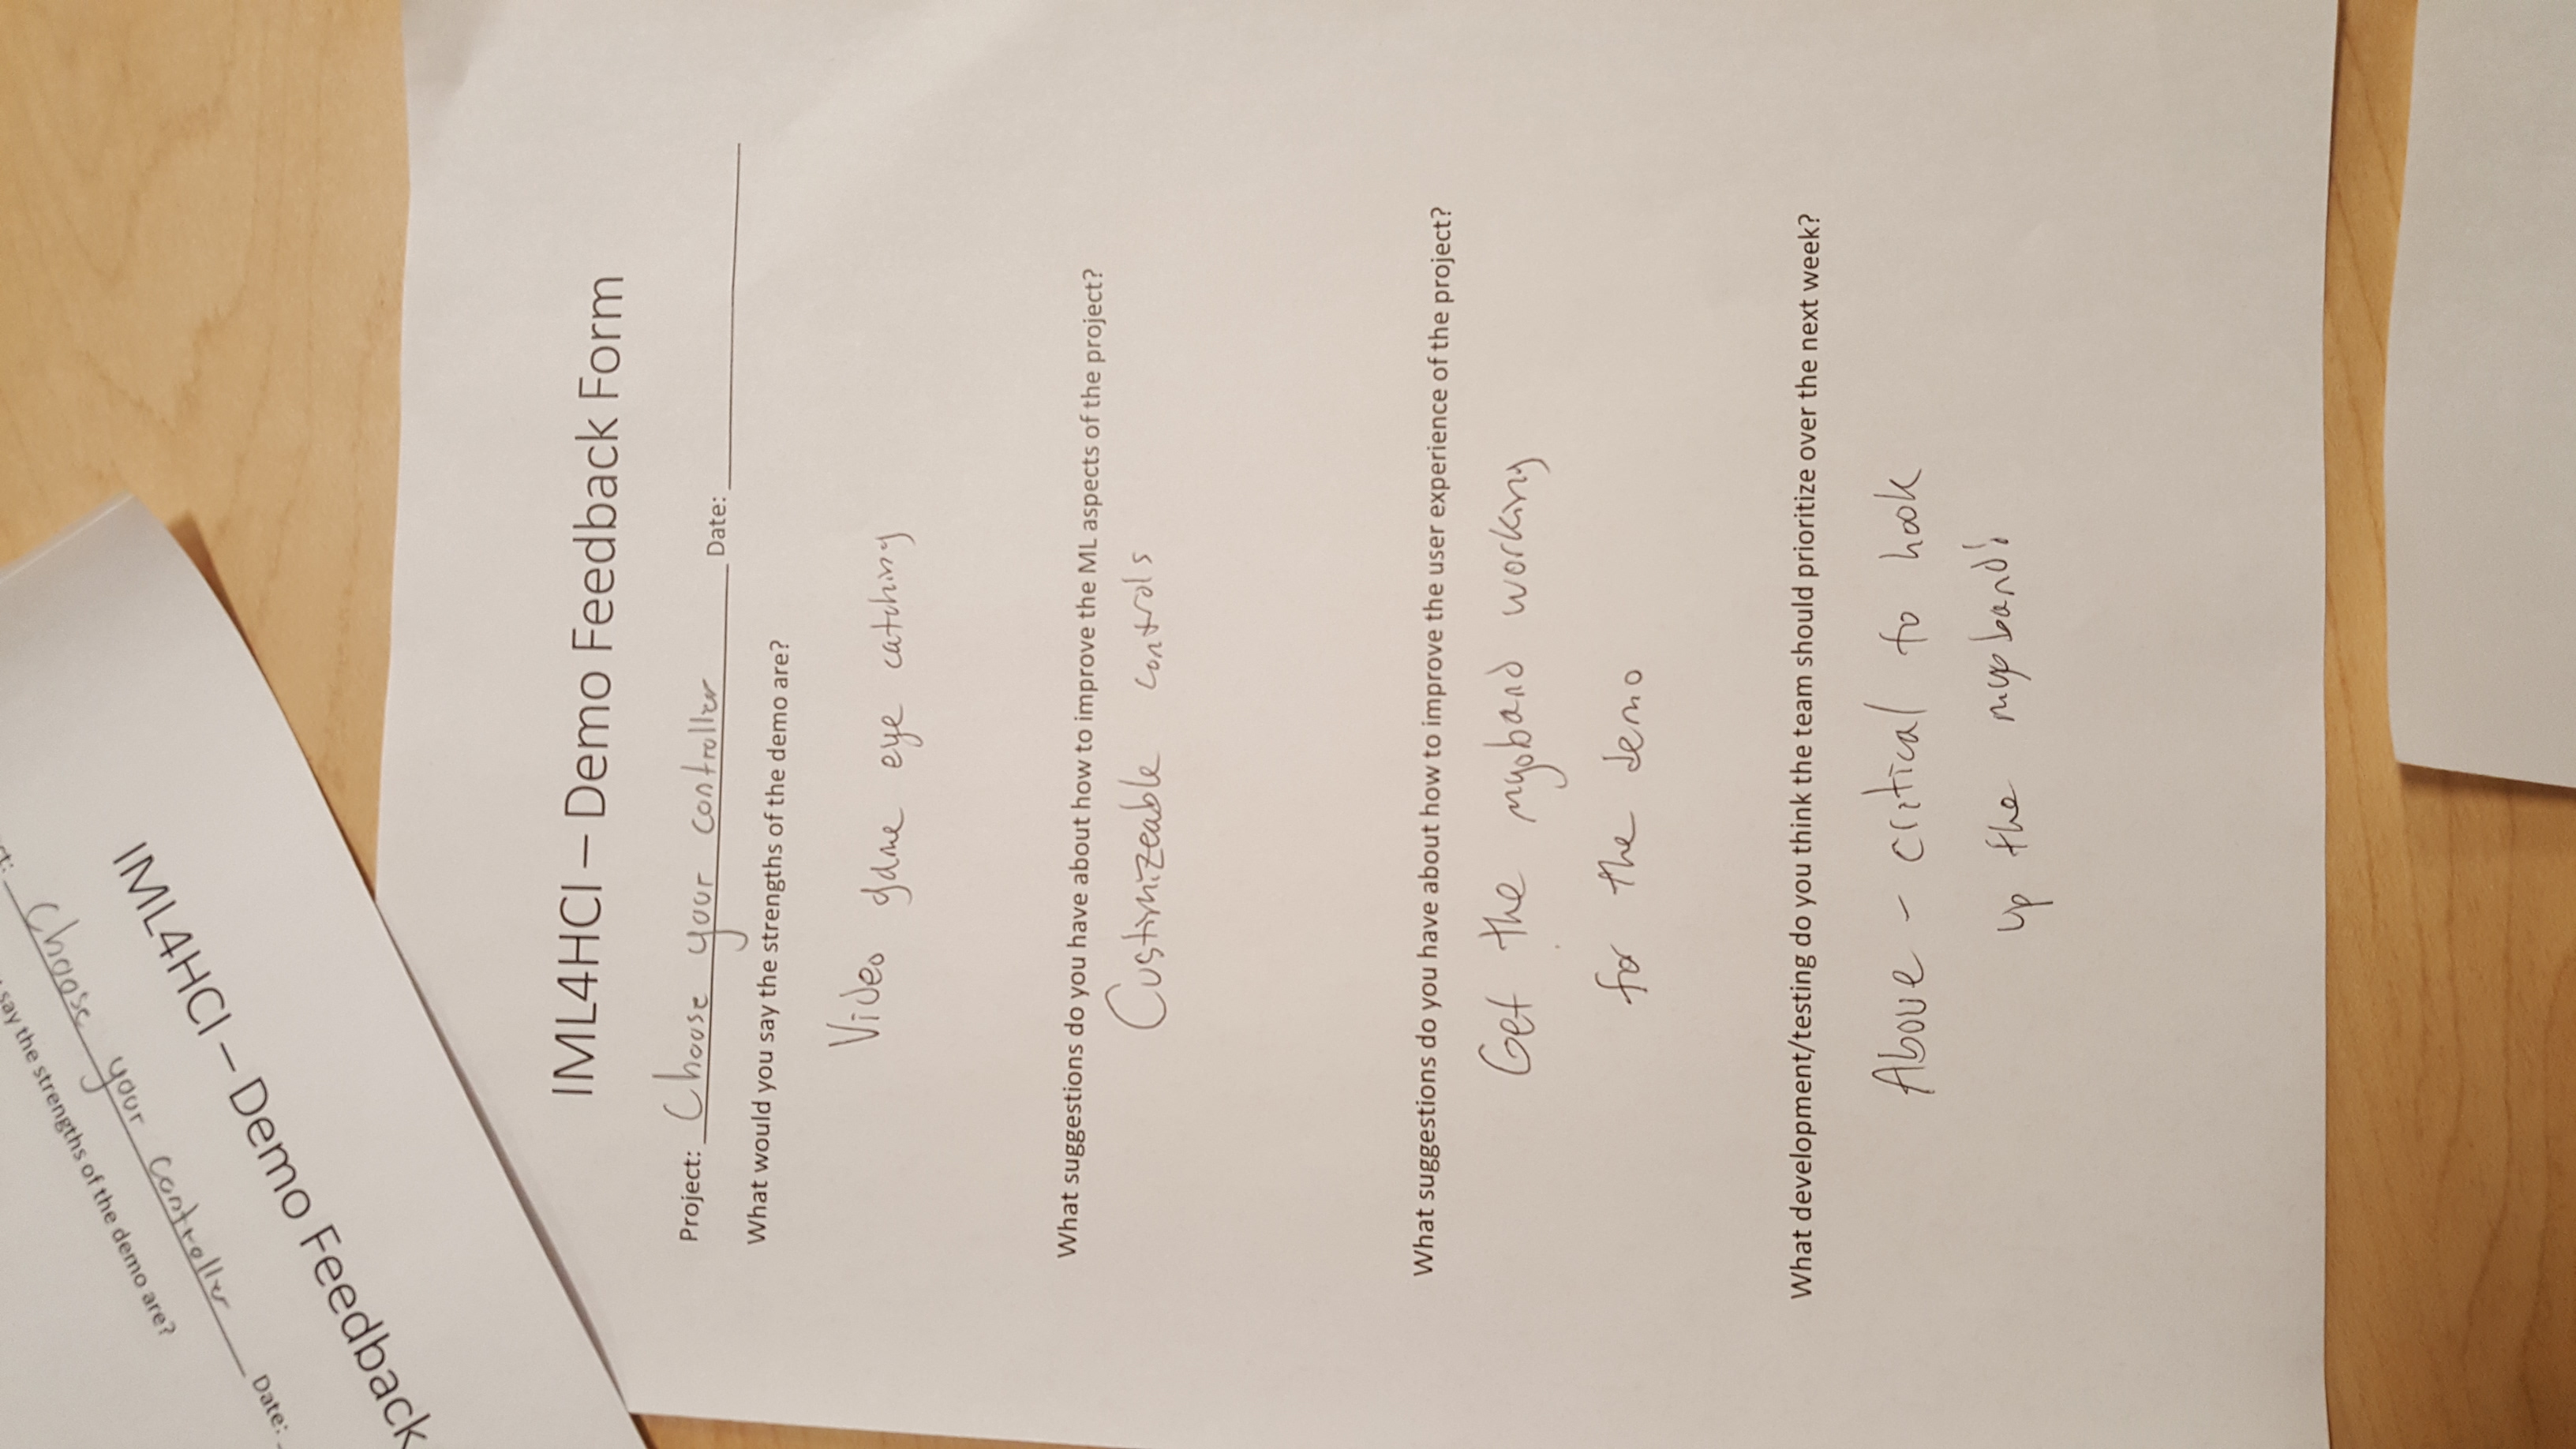 say the strengths of the demo are?
Choose your controller
Date:
IML4HCI – Demo Feedback
IML4HCI – Demo Feedback Form
Project: Choose your controller Date:
What would you say the strengths of the demo are?
Video game eye catching
What suggestions do you have about how to improve the ML aspects of the project?
Custimizeable controls
What suggestions do you have about how to improve the user experience of the project?
Get the myoband working
for the demo
What development/testing do you think the team should prioritize over the next week?
Above - critical to hook
up the myoband!